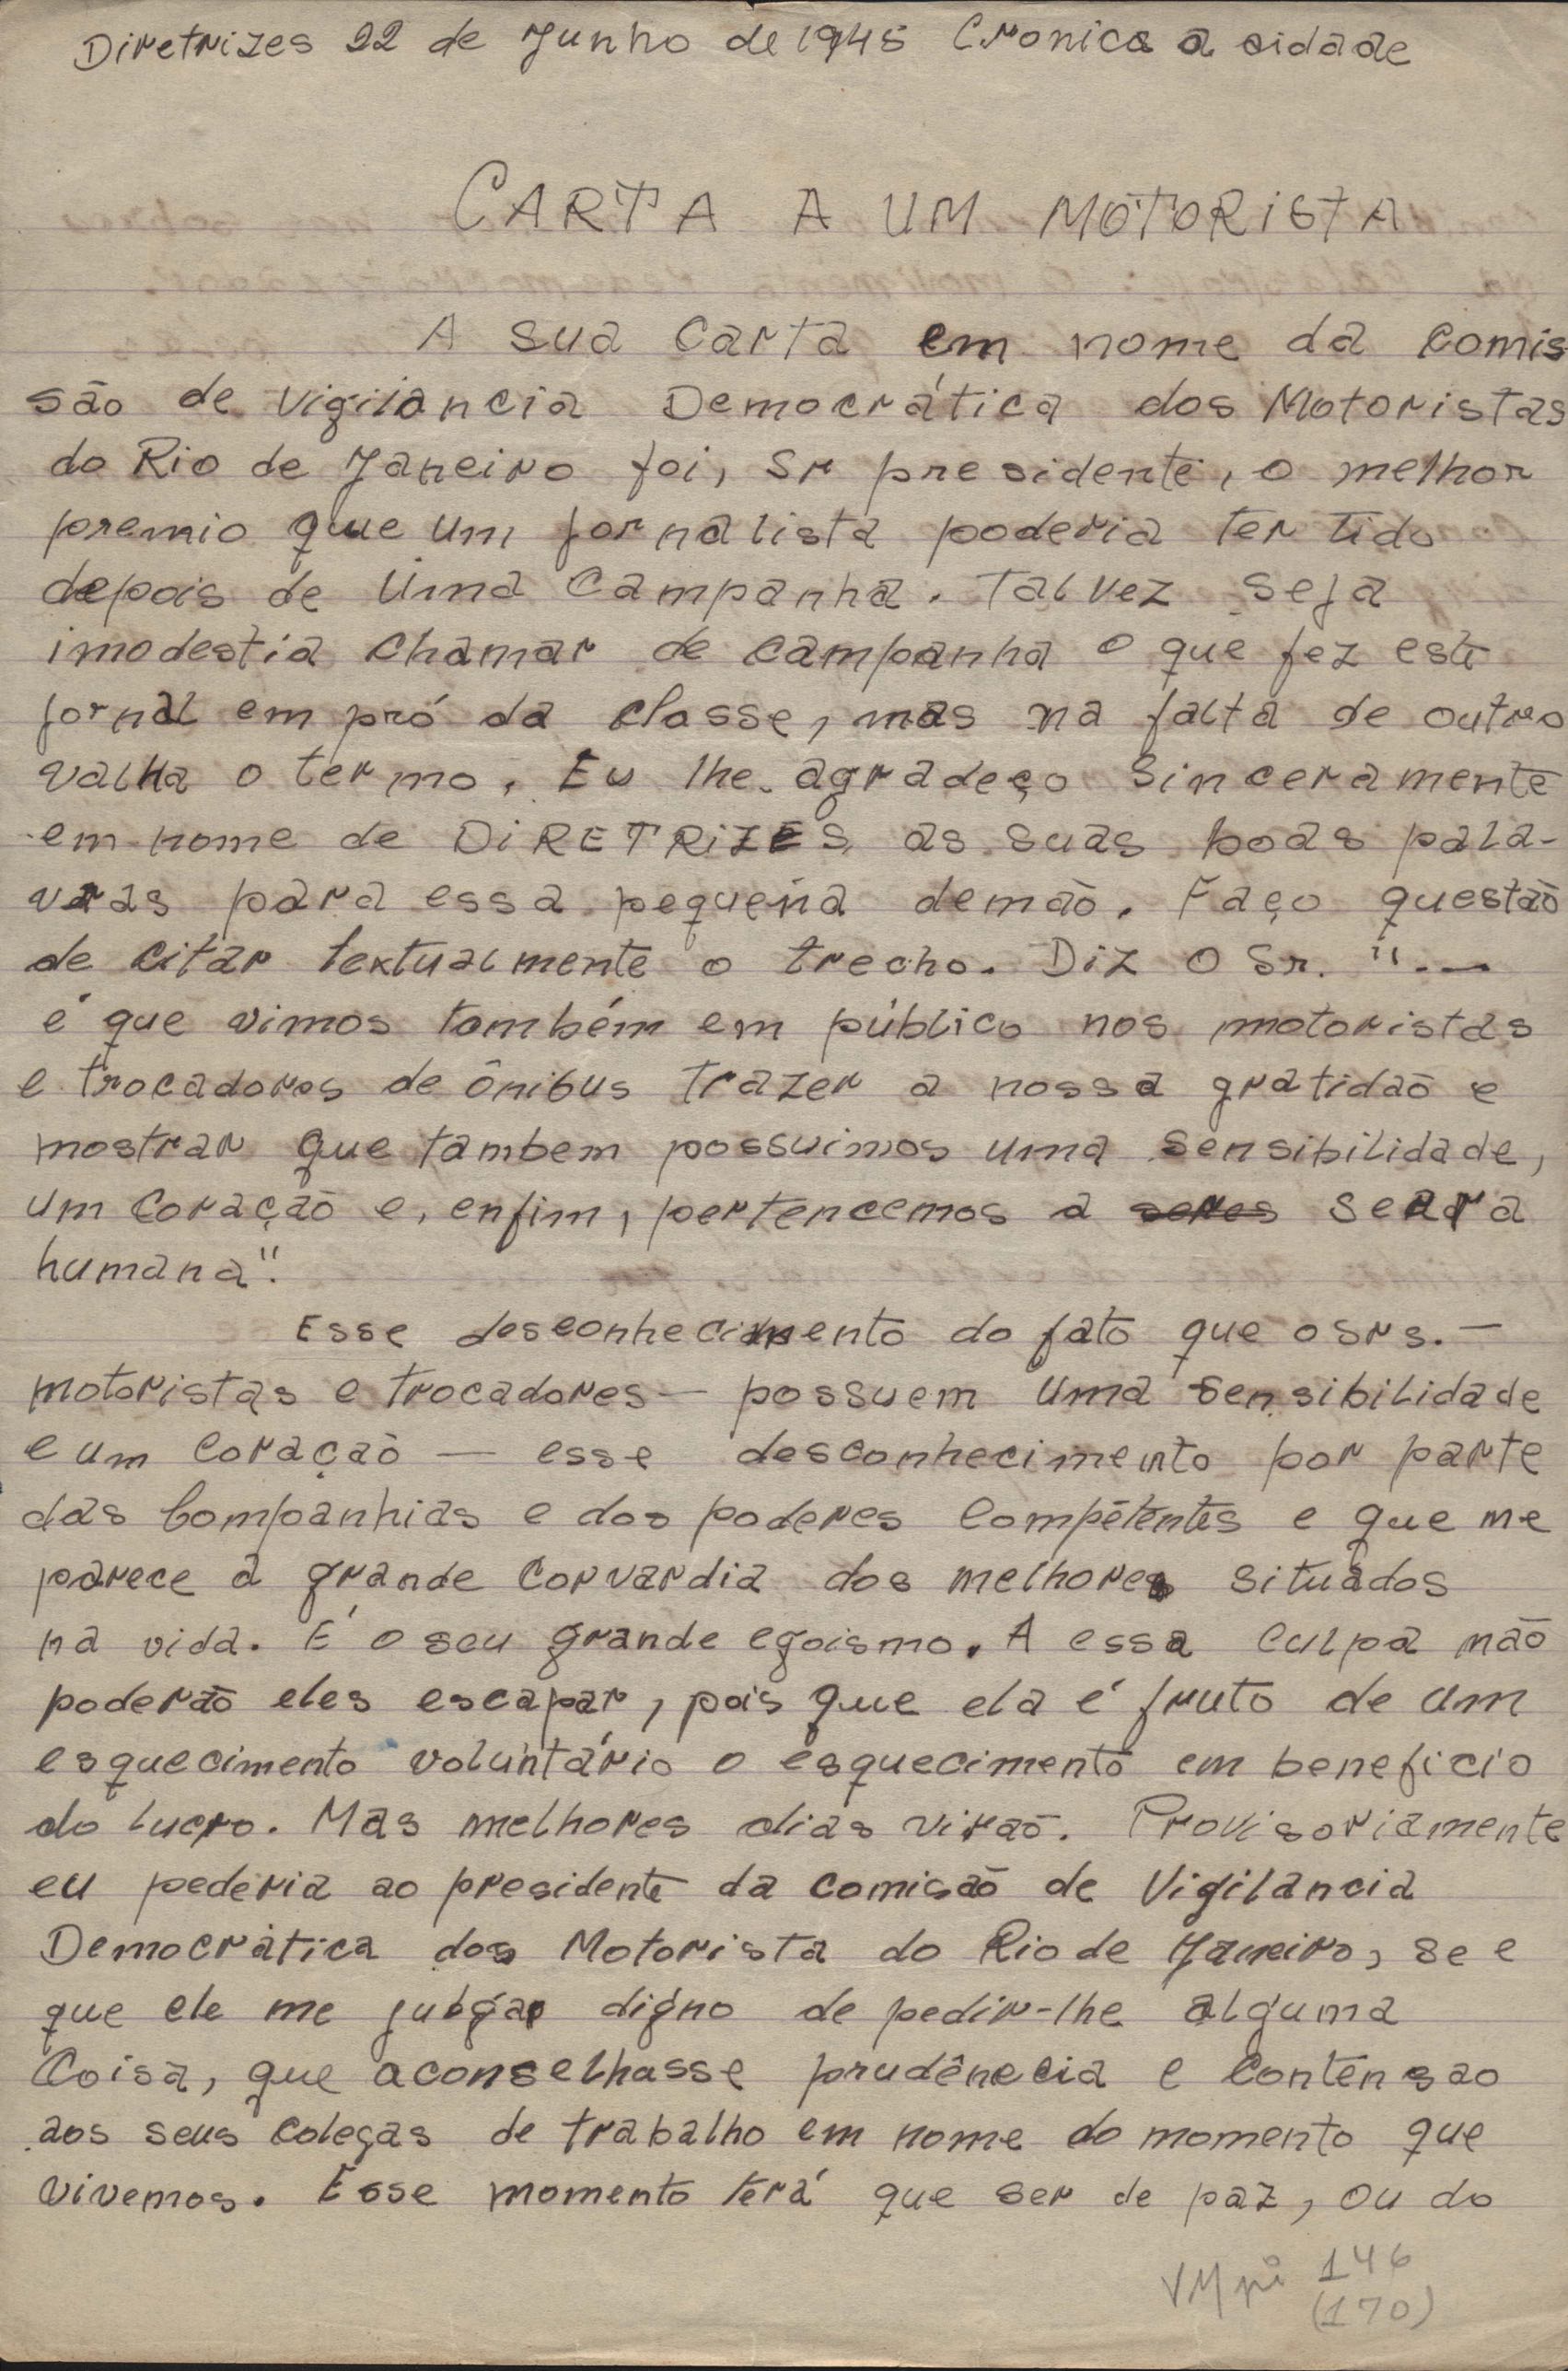 Diretrizes 22 de Junho de 1945 Cronica a cidade
CARTA A UM MOTORISTA
A sua carta em nome da comis
são de vigilancia Democrática dos Motoristas
do Rio de Janeiro foi, Sr presidente, o melhor
premio que um jornalista poderia ter tido
depois de uma campanha. Talvez seja
imodestia chamar de campanha o que fez este
jornal em pró da classe, mas na falta de outro
valha o termo. Eu lhe agradeço sinceramente
em nome de DIRETRIZES as suas boas pala-
vras para essa pequena demão. Faço questão
de citar textualmente o trecho. Diz o Sr. "..—
é que vimos também em público nos motoristas
e trocadores de ônibus trazer a nossa gratidão e
mostrar que tambem possuimos uma sensibilidade,
um coração e, enfim, pertencemos a seres seara
humana".
Esse desconhecimento do fato que o srs. —
motoristas e trocadores — possuem uma sensibilidade
e um coração — esse desconhecimento por parte
das Companhias e dos poderes competentes e que me
parece a grande corvardia dos melhores situados
na vida. É o seu grande egoismo. A essa culpa não
poderão eles escapar, pois que ela é fruto de um
esquecimento voluntário o esquecimento em beneficio
do lucro. Mas melhores dias virão. Provisoriamente
eu pederia ao presidente da comisão de Vigilancia
Democrática dos Motorista do Rio de Janeiro, se e
que ele me julgar digno de pedir-lhe alguma
Coisa, que aconselhasse prudênecia e contensao
aos seus colegas de trabalho em nome do momento que
vivemos. Esse momento terá que ser de paz, ou do
VM pi 146
(170)